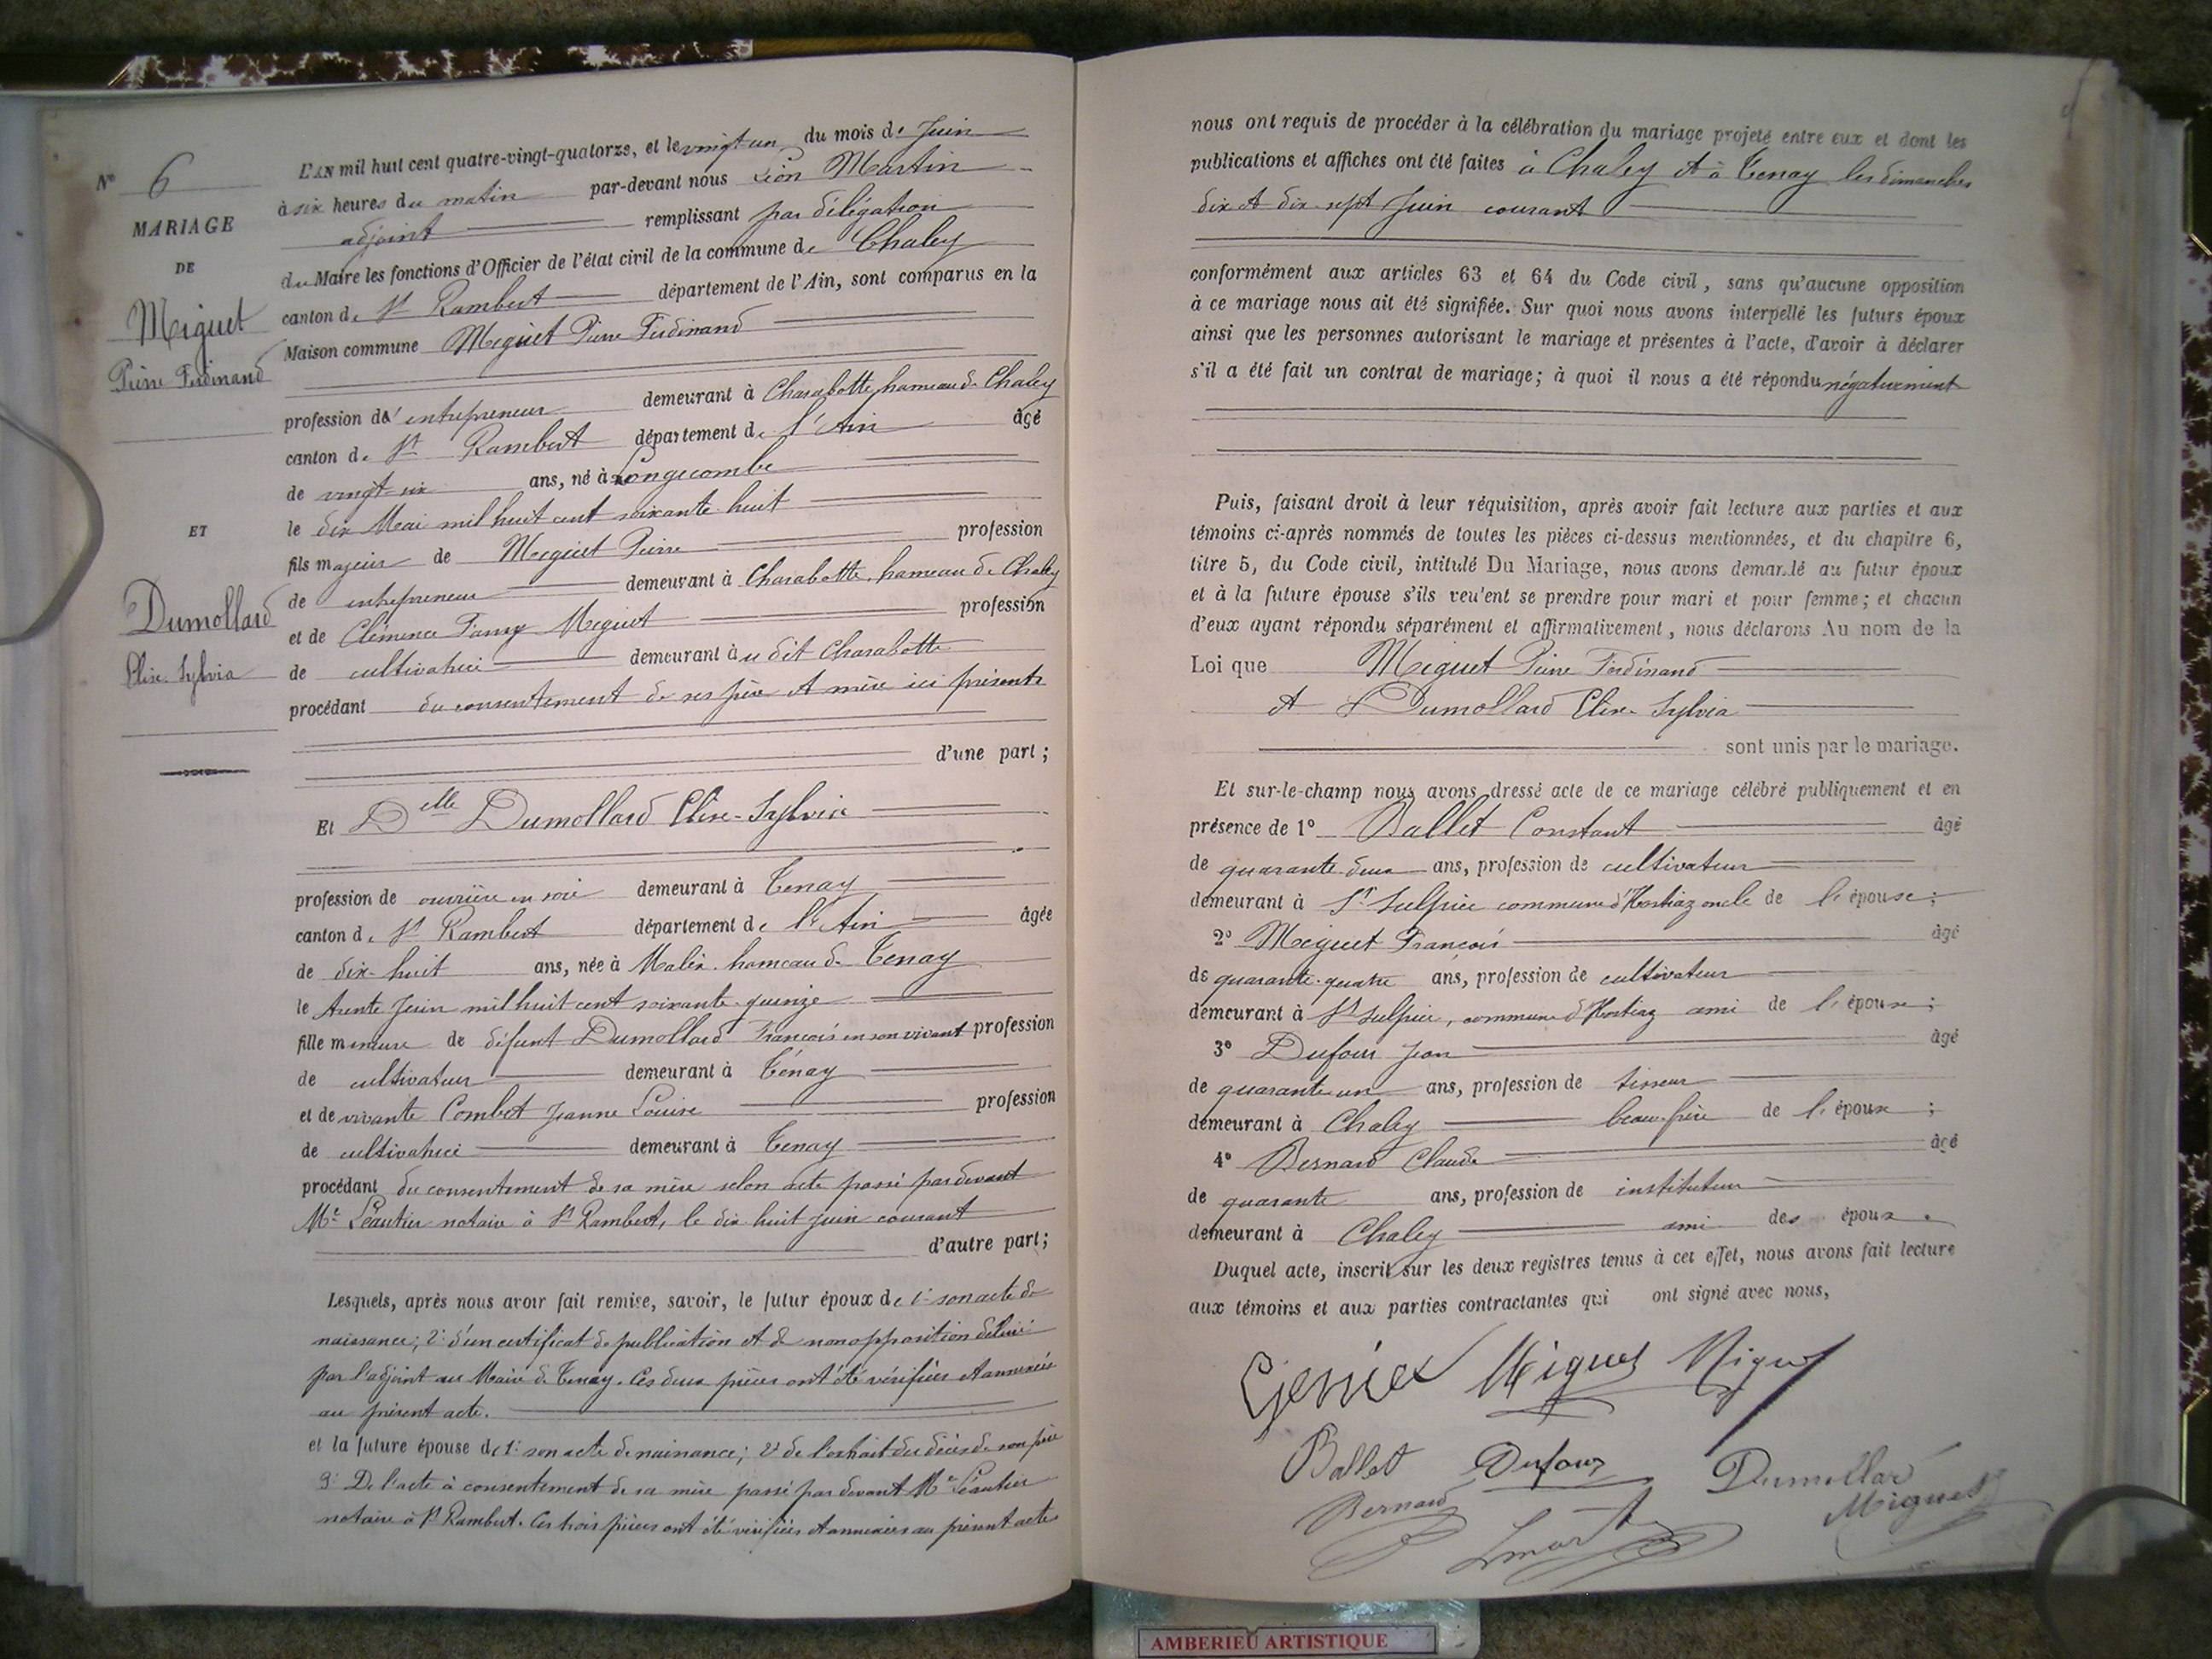 N° 6
MARIAGE
DE
Miguet
Pierre Ferdinand
ET
Dumollard
Elise-Sylvia
L'AN mil huit cent quatre-vingt-quatorze, et le vingt un du mois de Juin
à six heures du matin par-devant nous Léon Martin
adjoint remplissant par délégation
du Maire les fonctions d'Officier de l'état civil de la commune de Chaley
canton de St Rambert département de l'Ain, sont comparus en la
Maison commune Miguet Pierre Ferdinand
profession d'entrepreneur demeurant à Charabotte, hameau de Chaley
canton de St Rambert département de l'Ain âgé
de vingt-six ans, né à Longecombe
le dix Mai mil huit cent soixante-huit
fils majeur de Miguet Pierre profession
de entrepreneur demeurant à Charabotte, hameau de Chaley
et de Clémence Fanny Miguet profession
de cultivatrice demeurant à u dit Charabotte
procédant du consentement de ses père et mère ici présents
d'une part;
Et Delle Dumollard Elise-Sylvia
profession de ouvrière en soie demeurant à Tenay
canton de St Rambert département de l'Ain âgée
de dix-huit ans, née à Malix hameau de Tenay
le trente Juin mil huit cent soixante-quinze
fille mineure de défunt Dumollard François en son vivant profession
de cultivateur demeurant à Ténay
et de vivante Combet Jeanne Louise profession
de cultivatrice demeurant à Tenay
procédant du consentement de sa mère selon acte passé par devant
Me Léautier notaire à St Rambert, le dix huit juin courant
d'autre part;
Lesquels, après nous avoir fait remise, savoir, le futur époux de 1° son acte de
naissance; 2° d'un certificat de publication et de non opposition délivré
par l'adjoint au Maire de Tenay. Ces deux pièces ont été vérifiées et annexées
au présent acte.
et la future épouse de 1° son acte de naissance; 2° de l'extrait du décès de son père
3° De l'acte à consentement de sa mère passé par devant Me Léautier
notaire à St Rambert. Ces trois pièces ont été vérifiées et annexées au présent acte
nous ont requis de procéder à la célébration du mariage projeté entre eux et dont les
publications et affiches ont été faites à Chaley et à Tenay les dimanches
dix et dix-sept Juin courant
conformément aux articles 63 et 64 du Code civil, sans qu'aucune opposition
à ce mariage nous ait été signifiée. Sur quoi nous avons interpellé les futurs époux
ainsi que les personnes autorisant le mariage et présentes à l'acte, d'avoir à déclarer
s'il a été fait un contrat de mariage; à quoi il nous a été répondu négativement
Puis, faisant droit à leur réquisition, après avoir fait lecture aux parties et aux
témoins ci-après nommés de toutes les pièces ci-dessus mentionnées, et du chapitre 6,
titre 5, du Code civil, intitulé Du Mariage, nous avons demandé au futur époux
et à la future épouse s'ils veulent se prendre pour mari et pour femme; et chacun
d'eux ayant répondu séparément et affirmativement, nous déclarons Au nom de la
Loi que Miguet Pierre Ferdinand
et Dumollard Elise-Sylvia
sont unis par le mariage.
Et sur-le-champ nous avons dressé acte de ce mariage célébré publiquement et en
présence de 1° Ballet Constant âgé
de quarante deux ans, profession de cultivateur
demeurant à St Sulpice commune d'Hostiaz oncle de l'épouse;
2° Miguet François âgé
de quarante-quatre ans, profession de cultivateur
demeurant à St Sulpice, commune d'Hostiaz ami de l'épouse;
3° Dufour Jean âgé
de quarante un ans, profession de tisseur
demeurant à Chaley beau-frère de l'époux;
4° Bernard Claude âgé
de quarante ans, profession de instituteur
demeurant à Chaley ami des époux.
Duquel acte, inscrit sur les deux registres tenus à cet effet, nous avons fait lecture
aux témoins et aux parties contractantes qui ont signé avec nous,
Miguet
Ballet Dufour Dumollar
Bernard Lmartin Miguet
AMBERIEU ARTISTIQUE